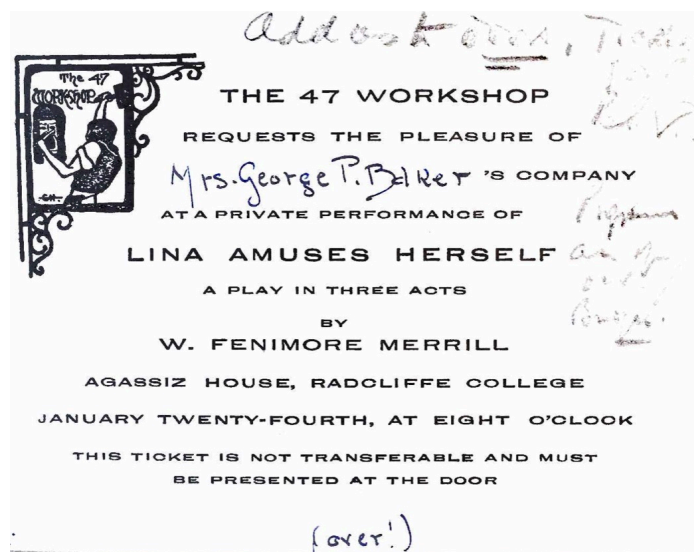 Add
The 47
WORKSHOP
THE 47 WORKSHOP
REQUESTS THE PLEASURE OF
Mrs. George P. Baker 'S COMPANY
AT A PRIVATE PERFORMANCE OF
LINA AMUSES HERSELF
A PLAY IN THREE ACTS
BY
W. FENIMORE MERRILL
AGASSIZ HOUSE, RADCLIFFE COLLEGE
JANUARY TWENTY-FOURTH, AT EIGHT O'CLOCK
THIS TICKET IS NOT TRANSFERABLE AND MUST
BE PRESENTED AT THE DOOR
(over!)